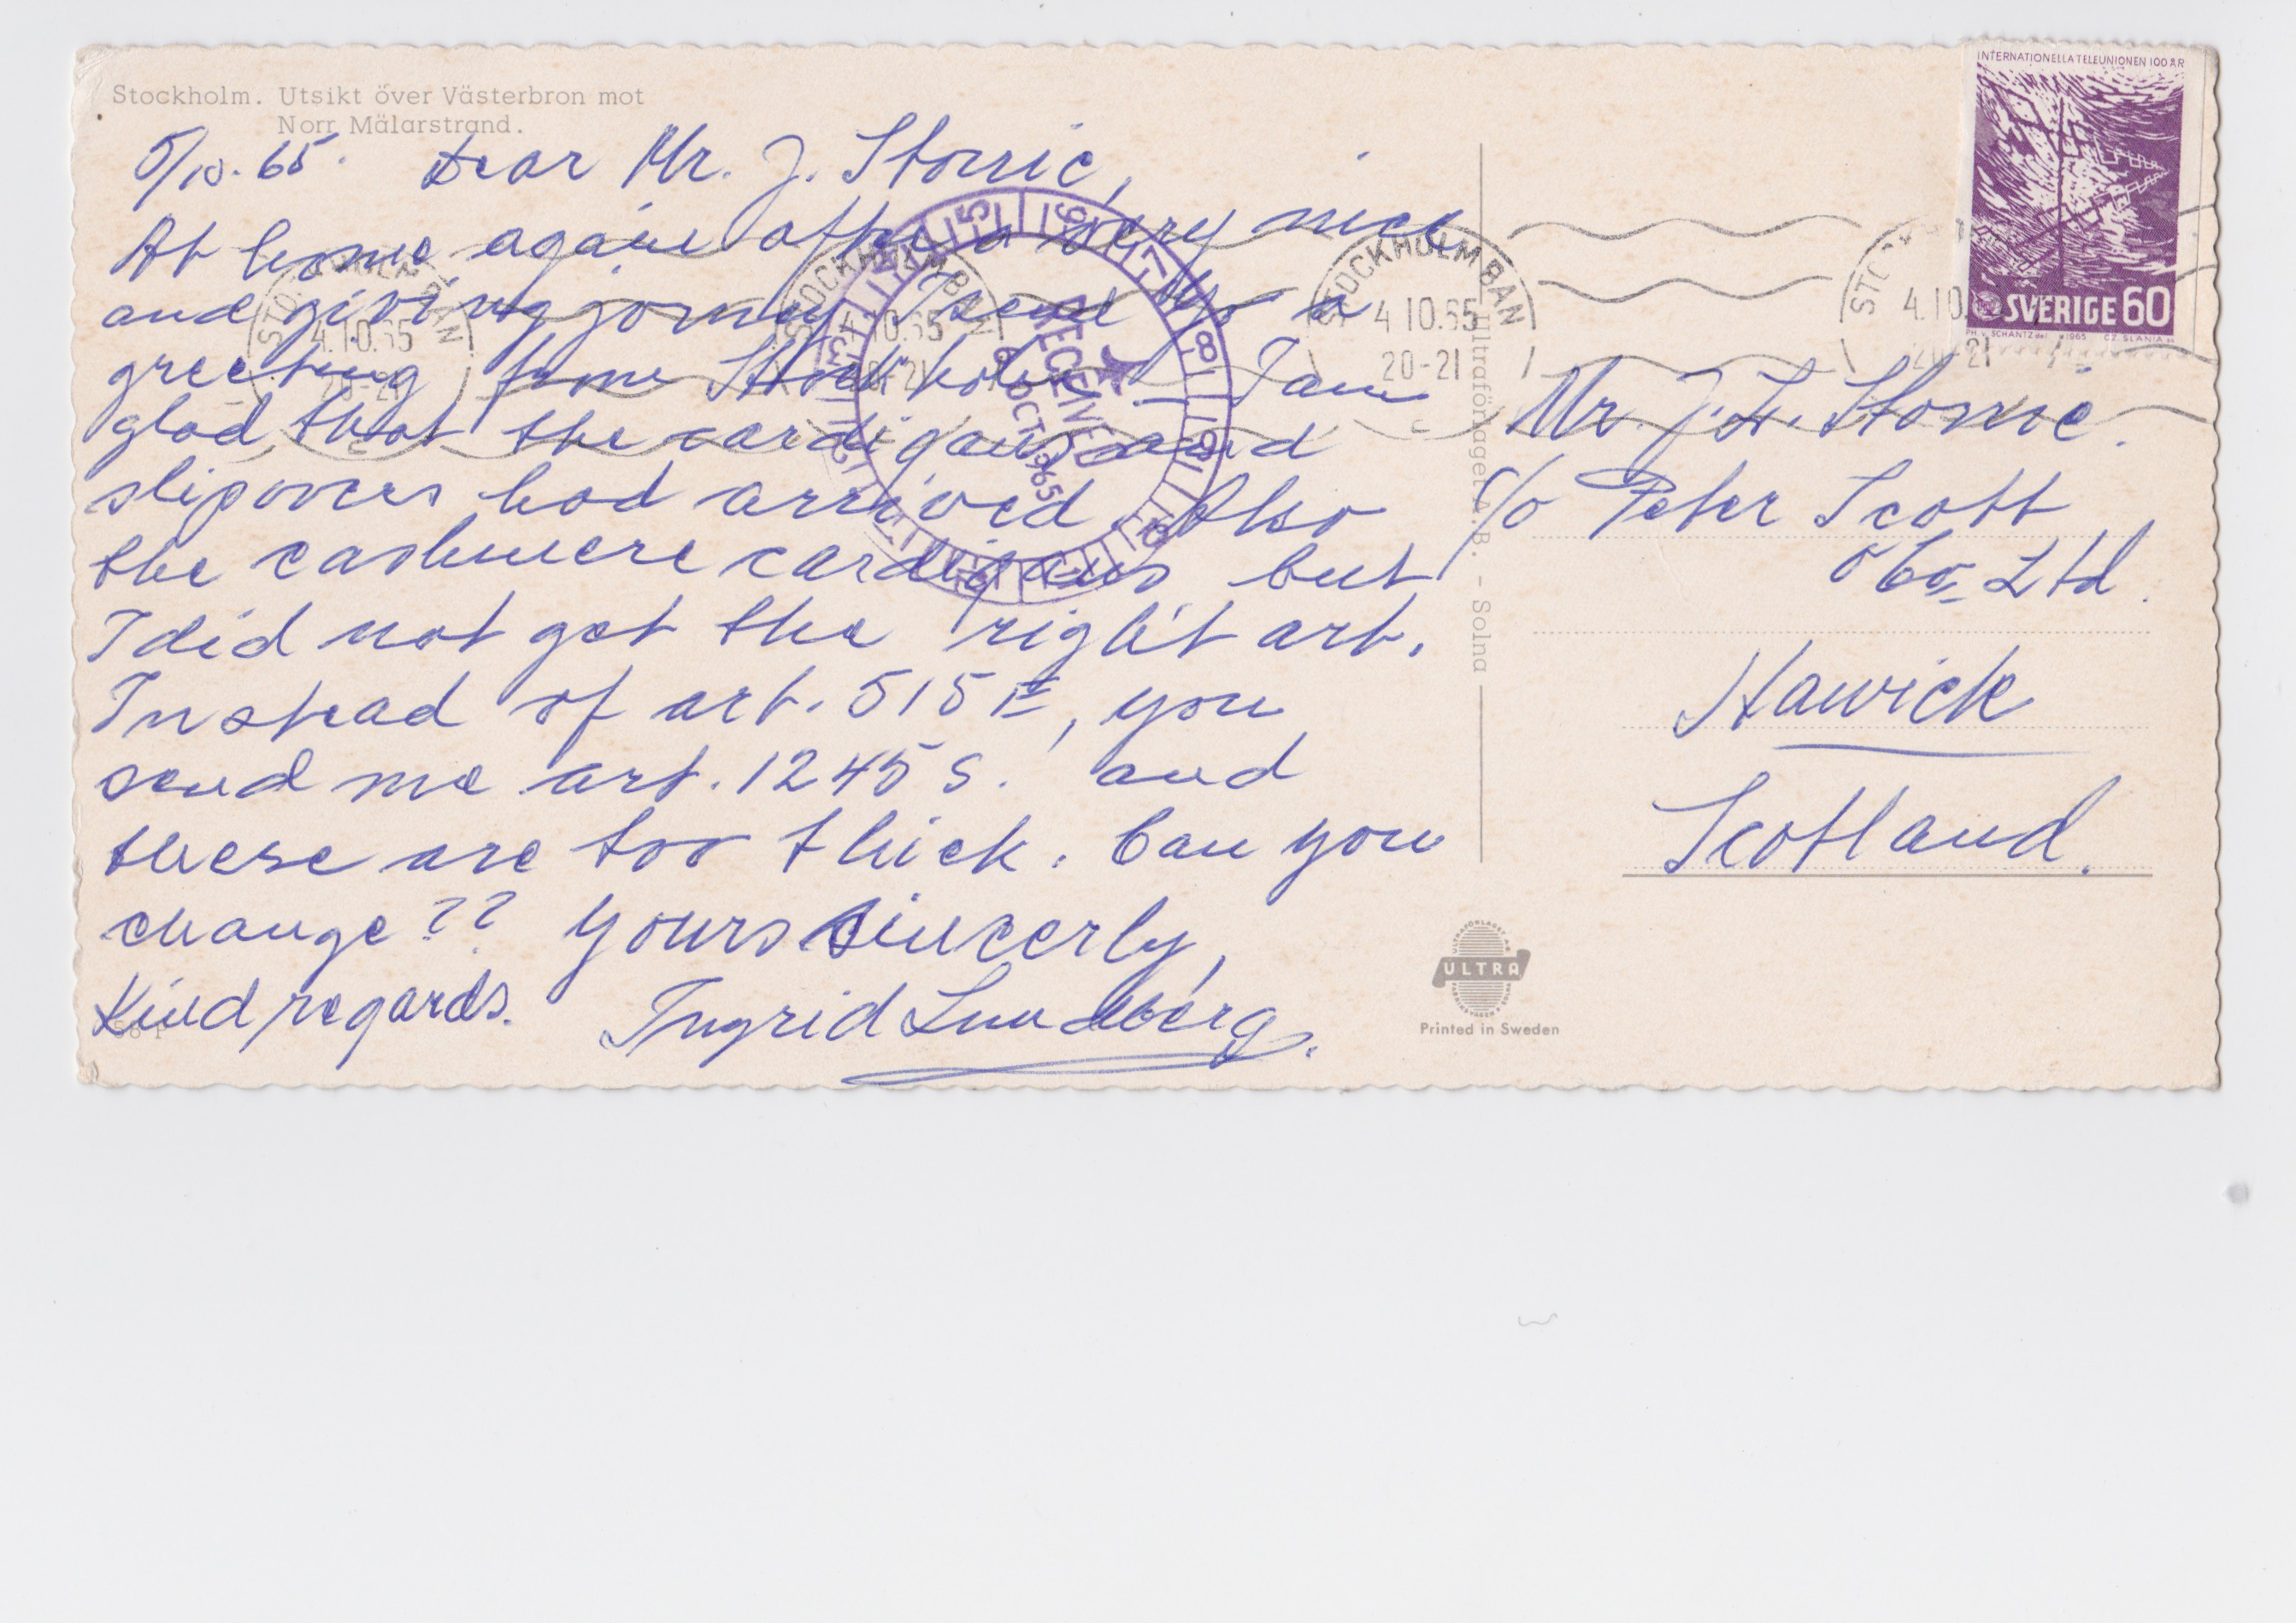 Stockholm. Utsikt över Västerbron mot
Norr Mälarstrand.
5/10. 65. Dear Mr. J. Storrie,
At home again after a very nice
and giving jorney I send you a
greeting from Stockholm. I am
glad that the cardigans and
slipovers had arrived. Also
the cashmere cardigans but
I did not get the right art.
Instead of art. 515 , you
send me art. 1245 S. and
these are too thick. Can you
change?? Yours sincerly,
Kind regards. Ingrid Lundberg.
58 P
Ultraförlaget A.B. - Solna
ULTRA
Printed in Sweden
INTERNATIONELLA TELEUNIONEN 100 ÅR
SVERIGE 60
PH. v. SCHANTZ del 1965 CZ. SLANIA sc
STOCKHOLM BAN
4.10.65
20-21
STOCKHOLM BAN
4.10.65
20-21
STOCKHOLM BAN
4 10.65
20-21
4.10.
20-21
RECEIVED
6 OCT 1965
Mr. J. Storrie.
c/o Peter Scott
& Co, Ltd.
Hawick
Scotland.